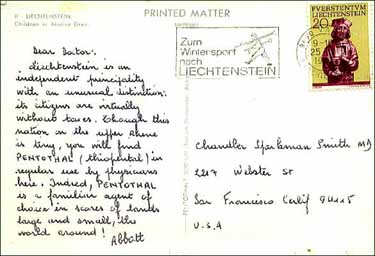 11 - LIECHTENSTEIN
Children in Native Dress
PRINTED MATTER
Dear Doctor:
Liechtenstein is an
independent principality
with an unusual distinction:
its citizens are virtually
without taxes. Though this
nation on the upper Rhine
is tiny, you will find
PENTOTHAL (thiopental) in
regular use by physicians
here. Indeed, PENTOTHAL
is a familiar agent of
choice in scores of lands
large and small, the
world around!
Abbott
Zum
Wintersport
nach
LIECHTENSTEIN
FÜRSTENTUM
20
LIECHTENSTEIN
9-
25
Chandler Sparkman Smith MD
2217 Webster St
San Francisco Calif 94115
U-S.A